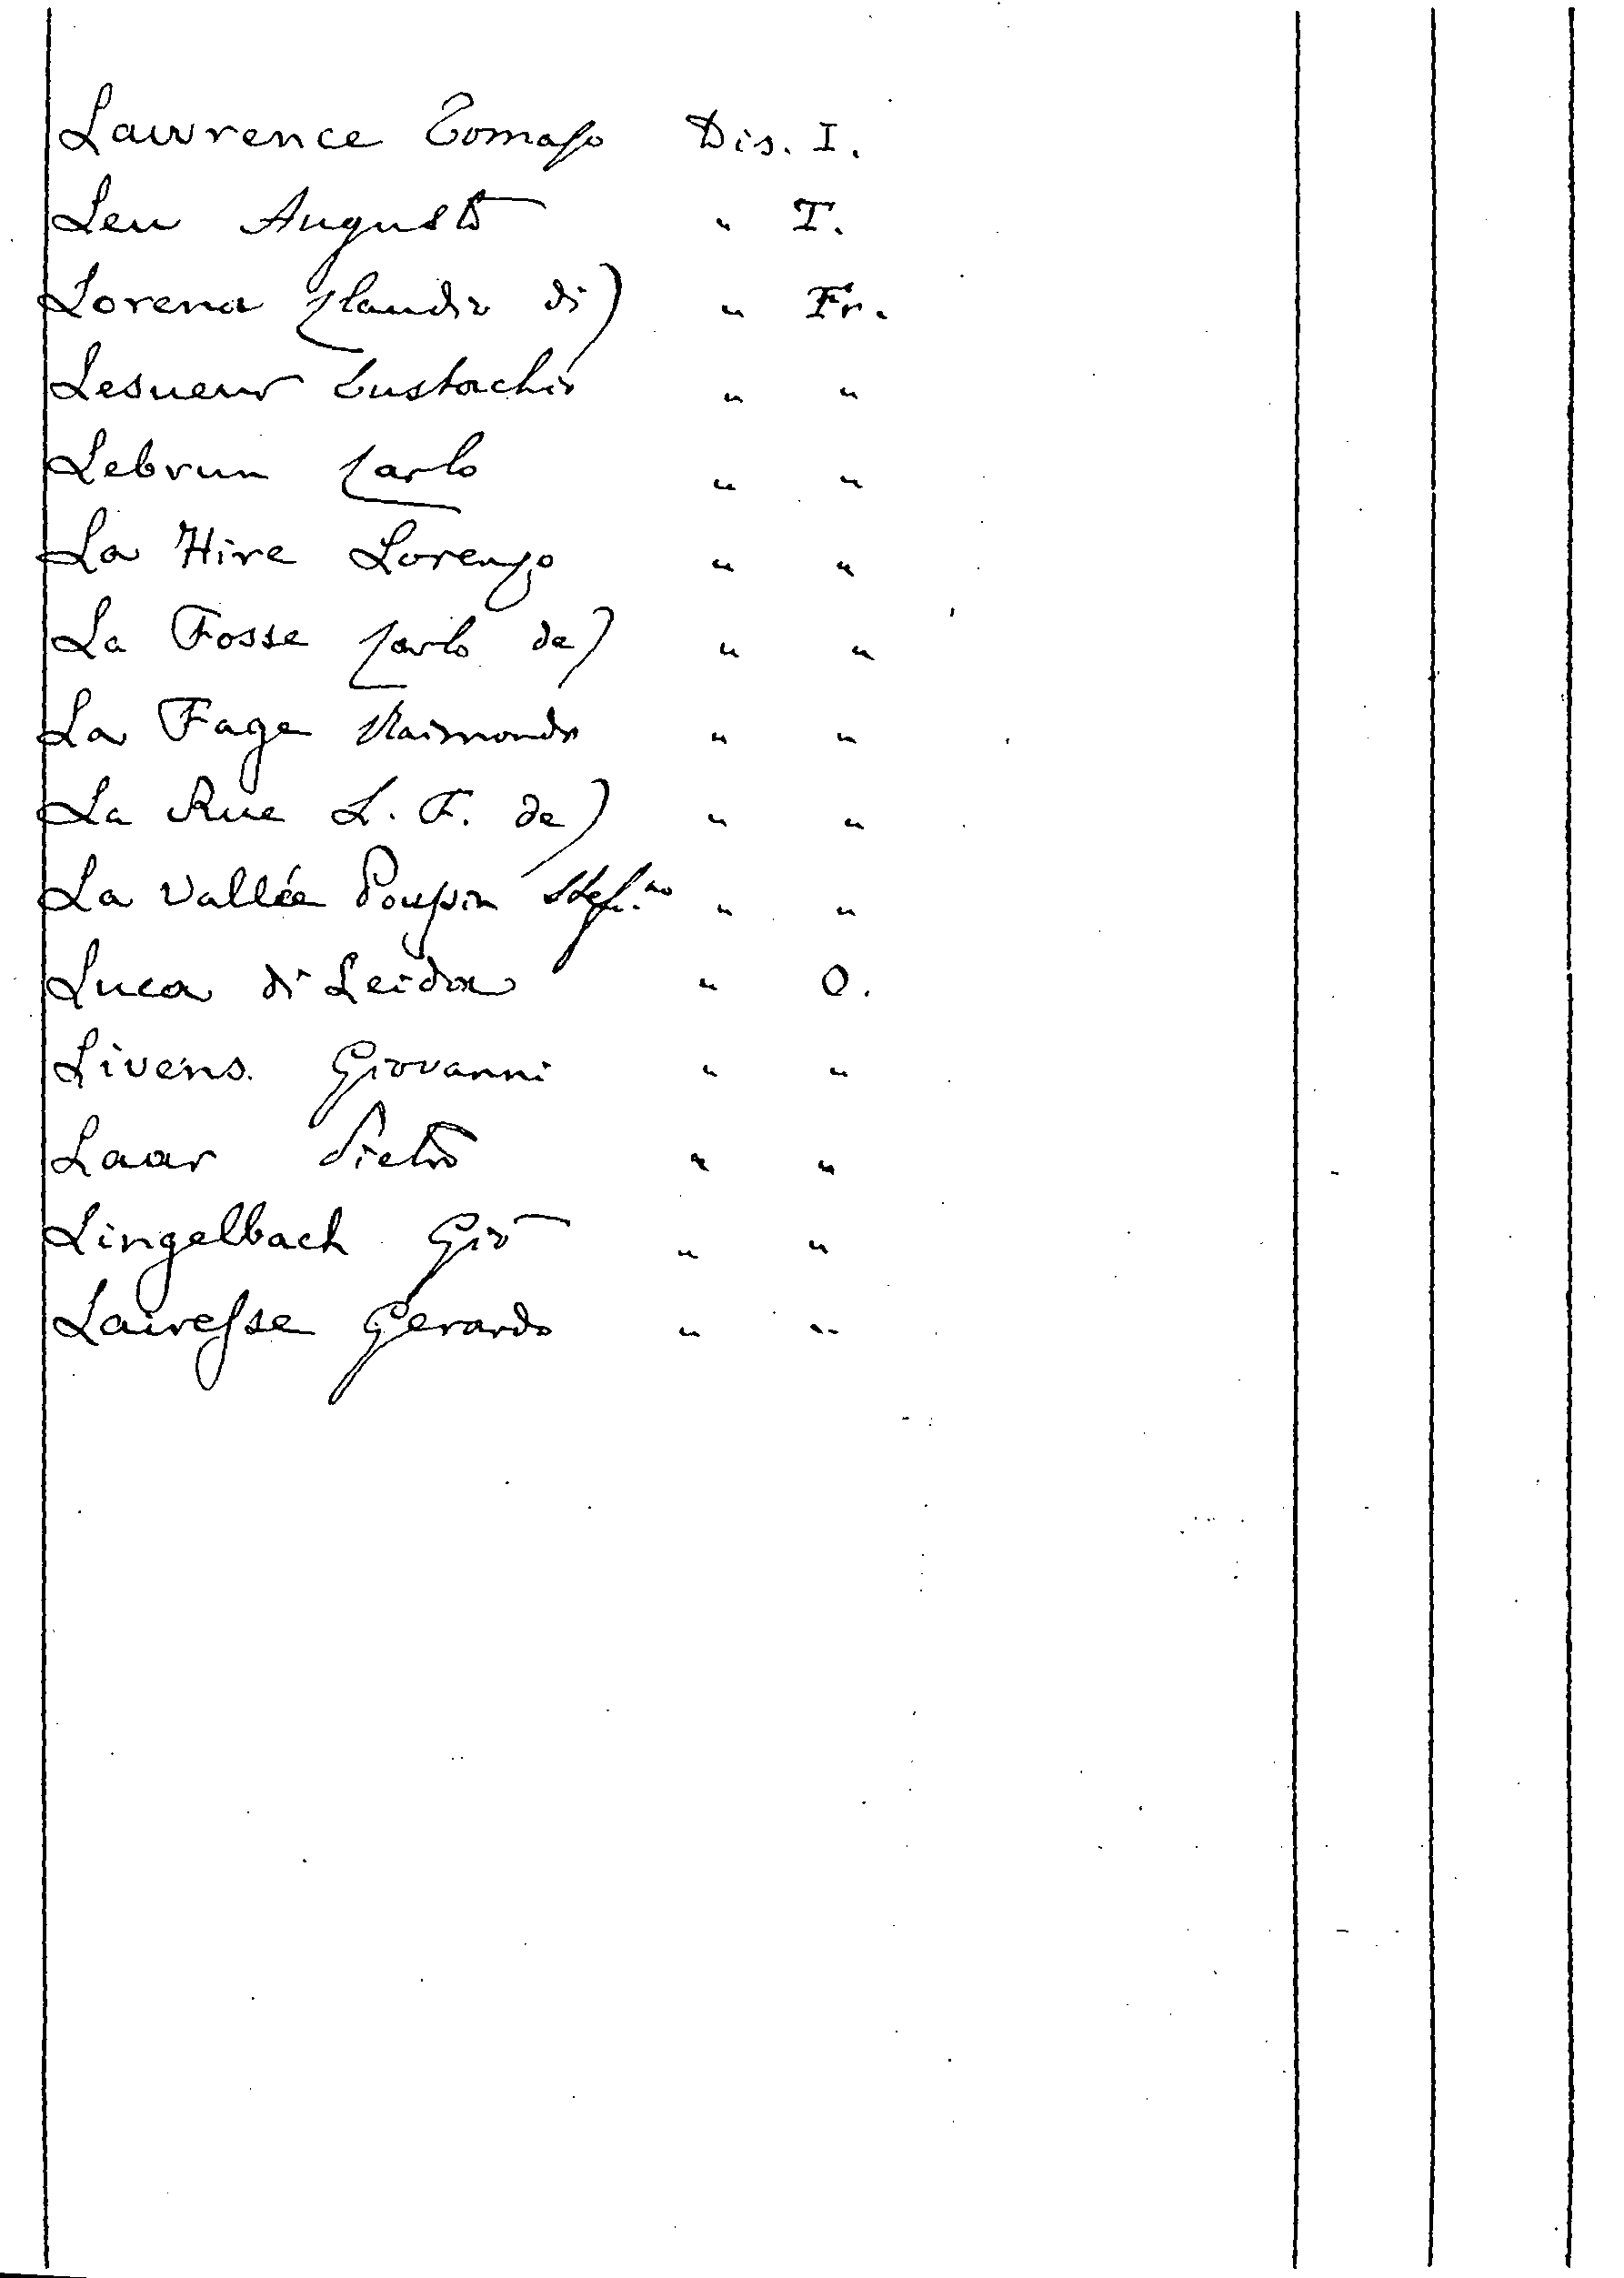 Lawrence Tomasso Dis. I.
Leu Augusto " T.
Lorena Claudio di) " Fr.
Lesueur Eustachio " "
Lebrun Carlo " "
La Hire Lorenzo " "
La Fosse Carlo de) " "
La Fage Raimondo " "
La Rue L. F. de) " "
La Vallée Poussin Stef.no " "
Luca di Leida " O.
Livens Giovanni " "
Laar Pietro " "
Lingelbach Gio " "
Lairesse Gerardo " "